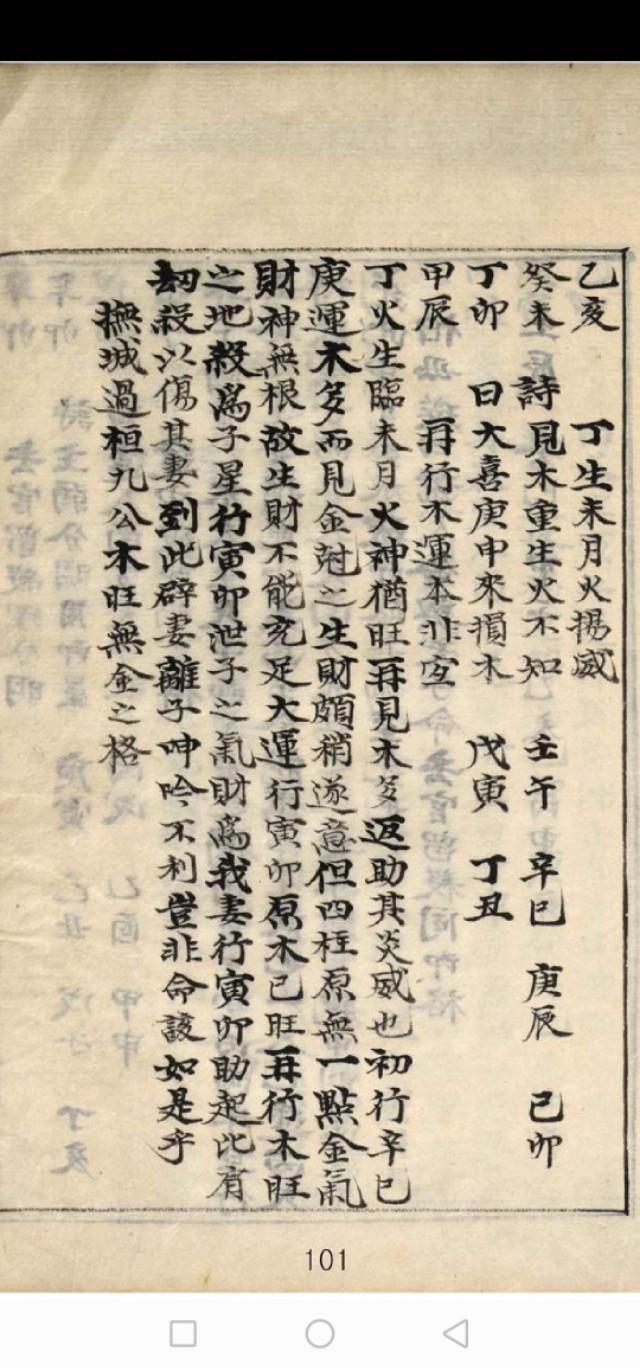 乙亥　丁生未月火揚威
癸未　詩見木重生火不知　壬午　辛巳　庚辰　己卯
丁卯　曰大喜庚申來損木　戊寅　丁丑
甲辰　再行木運本非宜
丁火生臨未月火神猶旺再見木多返助其炎威也初行辛巳
庚運木多而見金尅之生財頗稍遂意但四柱原無一點金氣
財神無根故生財不能充足大運行寅卯原木已旺再行木旺
之地殺為子星行寅卯泄子之氣財為我妻行寅卯助起此有
劫殺以傷其妻到此辟妻離子呻吟不利豈非命該如是乎
撫城過桓九公木旺無金之格
101